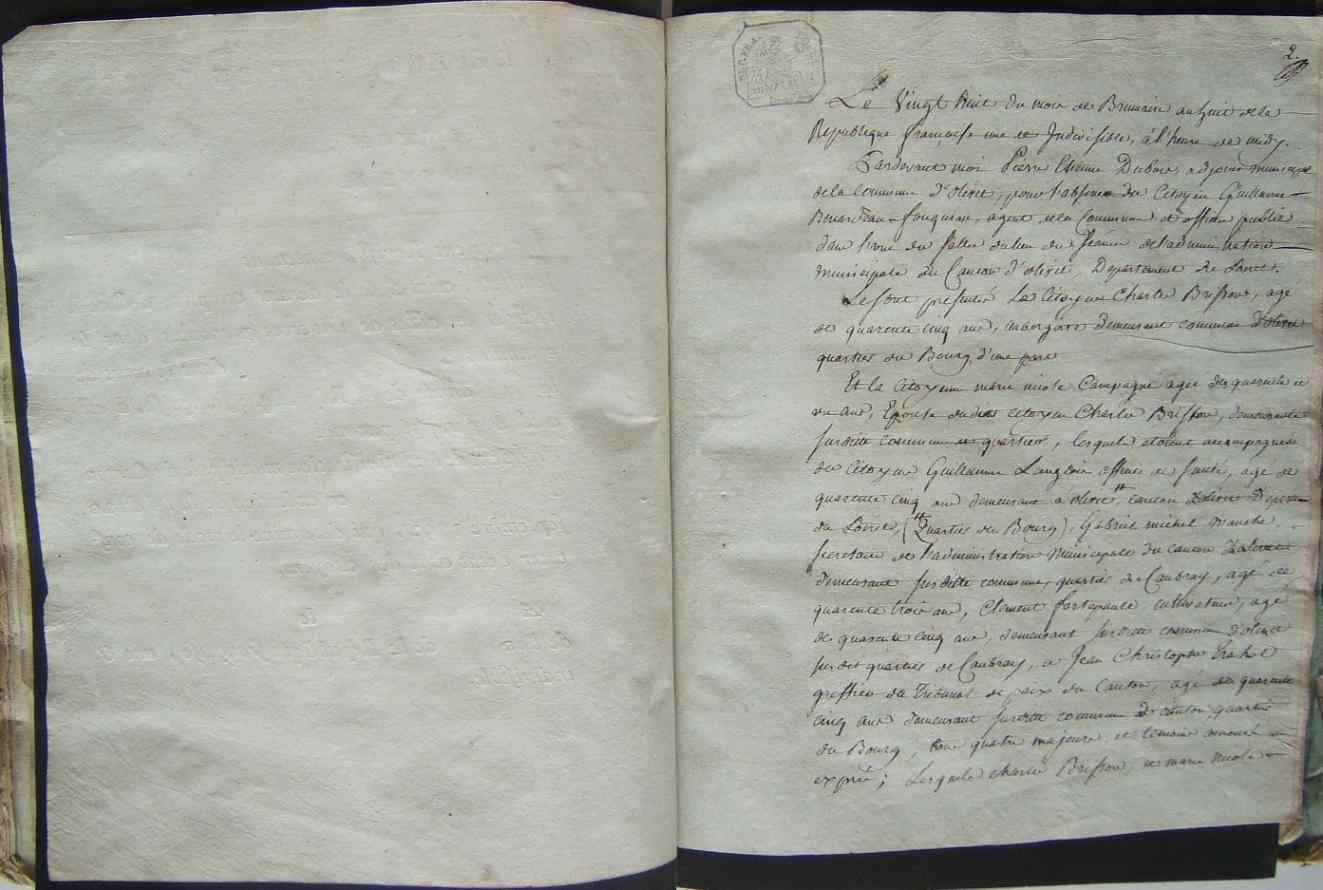 2
Le Vingt huit du mois de Brumaire an huit de la
Republique française une et Indivisible, à l'heure de midy.
Pardevant moi Pierre Etienne Dubois, adjoint municipal
de la Commune d'olivet, pour l'absence du Citoyen Guillaume
agent de la Commune et officier public
dans l'une des salles du lieu des séances de l'administration
municipale du Canton d'olivet, Departement du Loiret.
Se sont presentés Le Citoyen Charles Brisson, agé
de quarente cinq ans, demeurant commune d'olivet
quartier du Bourg, d'une part
Et la Citoyenne marie nicole Campagne agée de quarente et
un ans, Epouse dudit citoyen Charles Brisson, demeurante
susditte commune et quartier, lesquels etoient accompagnés
du Citoyen Guillaume Langlois officier de santé, agé de
quarente cinq ans demeurant à olivet, # canton d'olivet Departemt
du Loiret, (# Quartier du Bourg), Gabriel michel
secretaire de l'administration Municipale du canton d'olivet
demeurant susditte commune, quartier de Caubray, agé de
quarente trois ans, Clement fortepaule cultivateur, agé
de quarente cinq ans, demeurant susditte commune d'olivet
susdit quartier de Caubray, et Jean Christophe
greffier du Tribunal de paix du Canton, agé de quarente
cinq ans demeurant susditte commune de canton, quartier
du Bourg, tous quatre majeurs et temoins
exprès; Lesquels Charles Brisson, et marie nicole